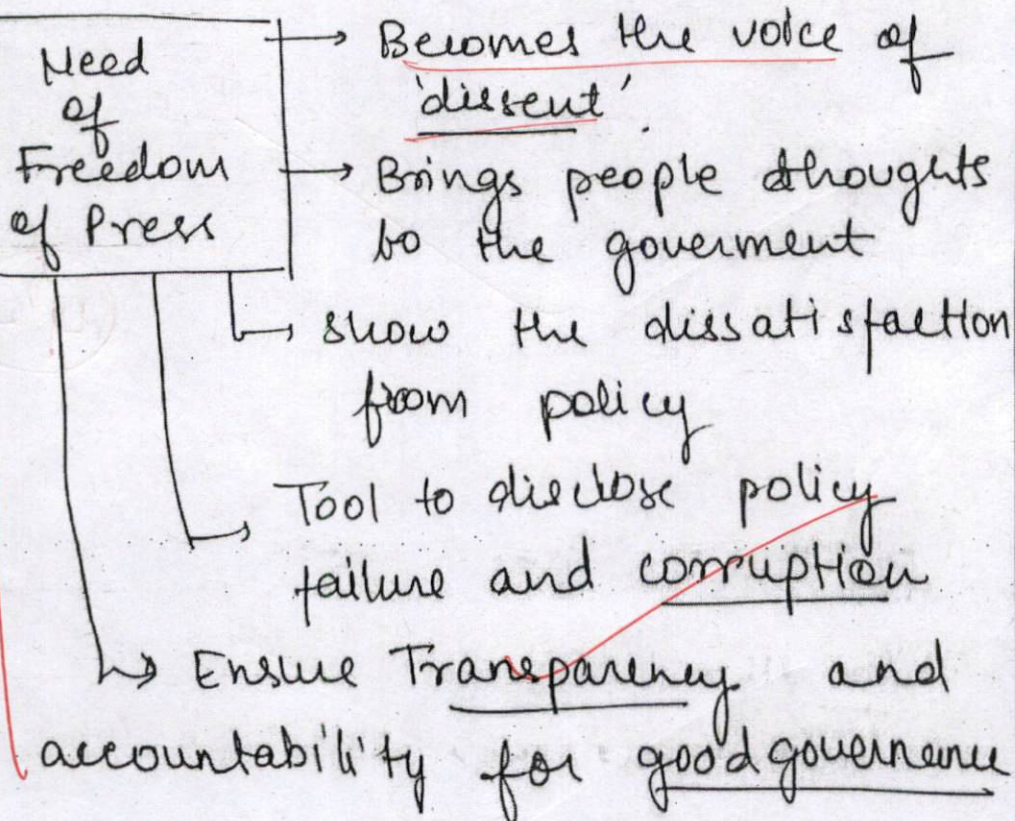 Need
of
Freedom
of Press
→ Becomes the voice of
'dissent'.
→ Brings people thoughts
to the goverment
→ show the dissatisfaction
from policy
→ Tool to disclose policy
failure and corruption
→ Ensure Transparency and
accountability for good governance